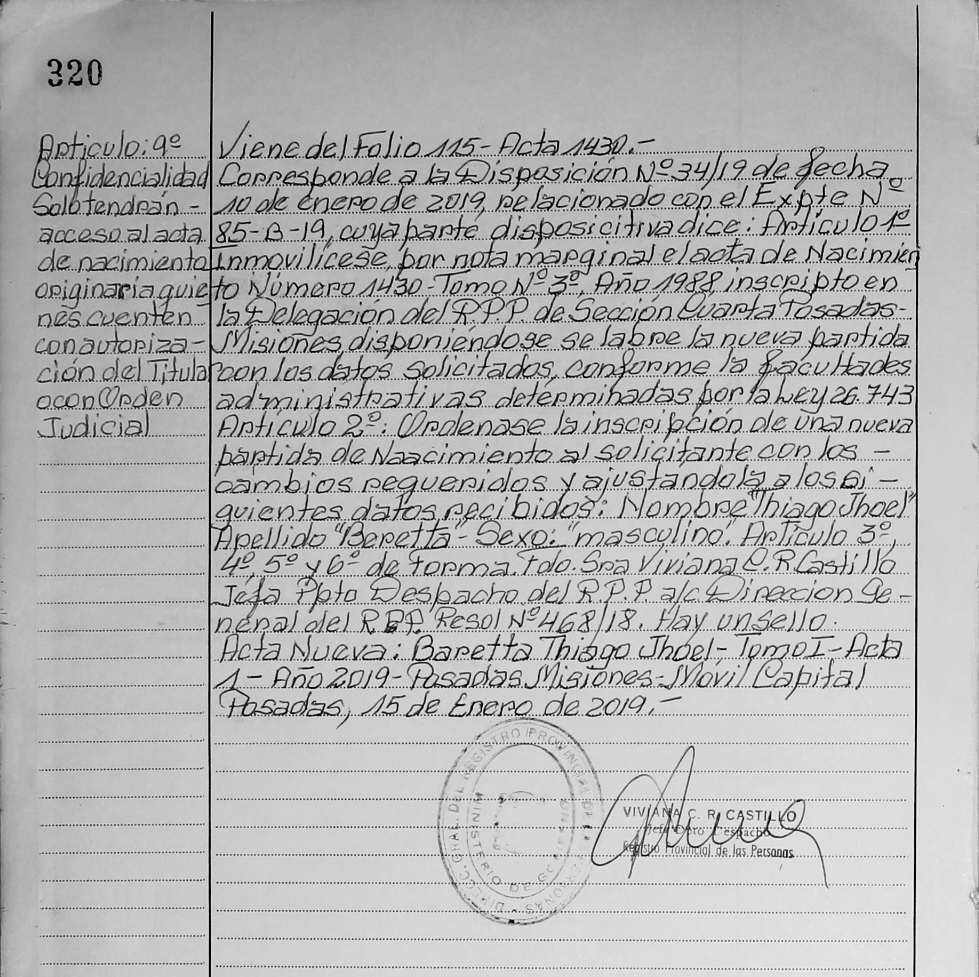 320
Articulo: 9º
Confidencialidad
Solo tendrán -
acceso al acta
de nacimiento
originaria quie
nes cuenten
con autoriza -
ción del Titular
o con Orden
Judicial
Viene del Folio 115 - Acta 1430.-
Corresponde a la Disposición Nº 34/19 de fecha
10 de enero de 2019, relacionado con el Expte Nº
85-B-19, cuya parte disposicitiva dice: Artículo 1º
Inmovilícese, por nota marginal el acta de Nacimien
to Número 1430-Tomo Nº 3º, Año 1988 inscripto en
la Delegación del R.P.P. de Sección Cuarta Posadas-
Misiones, disponiéndose se labre la nueva partida
con los datos solicitados, conforme la facultades
administrativas determinadas por la Ley 26.743
Artículo 2º: Ordenase la inscripción de una nueva
partida de Naacimiento al solicitante con los -
cambios requeridos y ajustándola a los si -
guientes datos recibidos: Nombre "Thiago Jhoel"
Apellido "Beretta" - Sexo: "masculino". Artículo 3º,
4º, 5º y 6º de forma. Fdo. Sra Viviana C. R. Castillo
Jefa Dpto Despacho del R.P.P a/c Direccion Ge -
neral del R.P.P. Resol Nº 468/18. Hay un sello.
Acta Nueva: Baretta Thiago Jhoel - Tomo I - Acta
1 - Año 2019 - Posadas Misiones - Móvil Capital
Posadas, 15 de Enero de 2019.-
DIRECC. GRAL. DEL REGISTRO PROVINCIAL DE LAS PERSONAS
VIVIANA C. R. CASTILLO
Jefe Dpto Despacho
Registro Provincial de las Personas